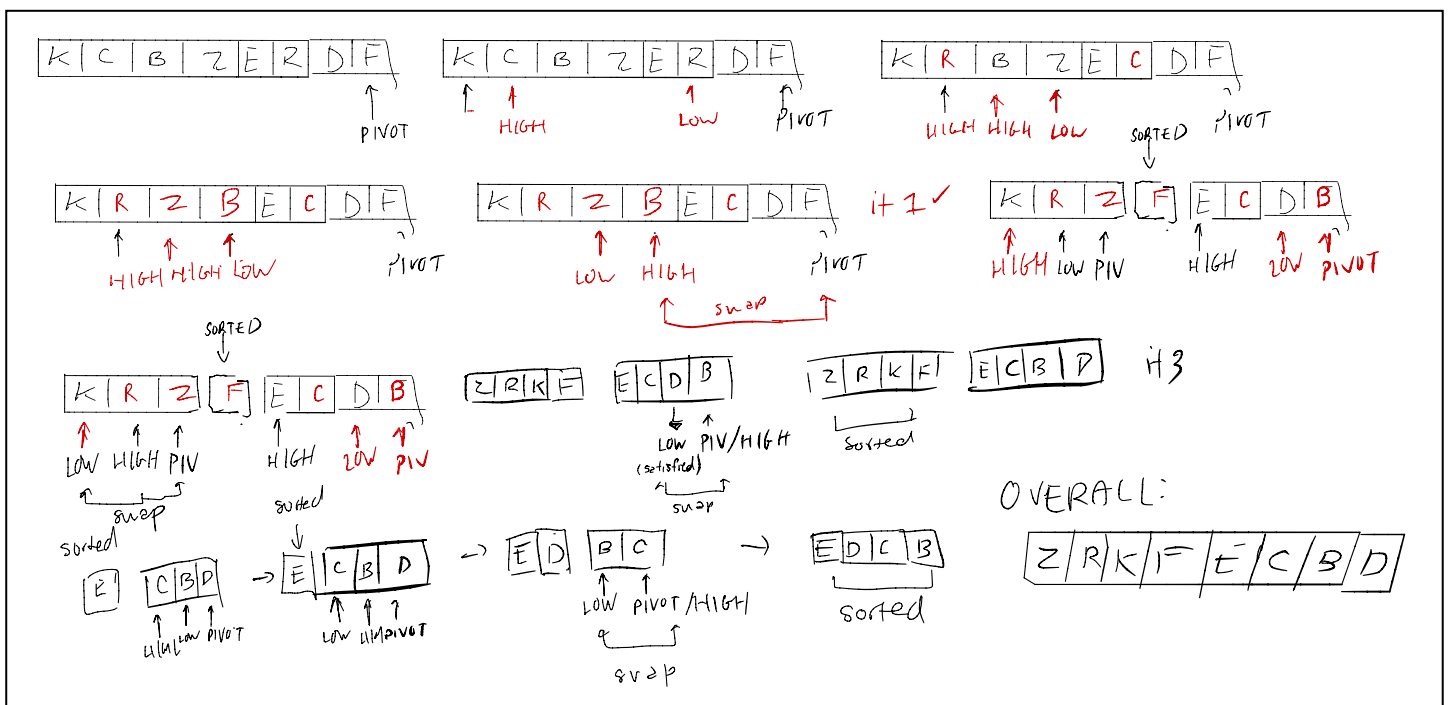 K C B Z E R D F
PIVOT
K C B Z E R D F
L HIGH LOW PIVOT
K R B Z E C D F
HIGH HIGH LOW PIVOT
K R Z B E C D F
HIGH HIGH LOW PIVOT
K R Z B E C D F it 1 ✓
LOW HIGH PIVOT
swap
SORTED
K R Z F E C D B
HIGH LOW PIV HIGH LOW PIVOT
SORTED
K R Z F E C D B
LOW HIGH PIV HIGH LOW PIV
swap
Z R K F E C D B
LOW PIV/HIGH
(satisfied)
swap
Z R K F E C B D it 3
sorted
sorted
E C B D
HIGH LOW PIVOT
sorted
→ E C B D
LOW HIGH PIVOT
→ E D B C
LOW PIVOT/HIGH
swap
→ E D C B
sorted
OVERALL:
Z R K F E C B D